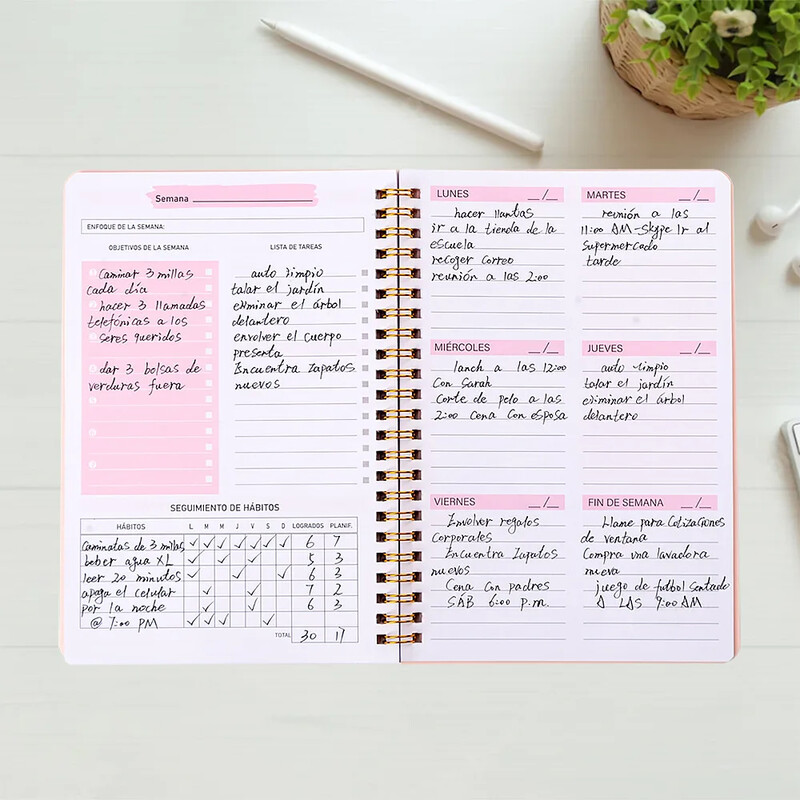 Semana
ENFOQUE DE LA SEMANA:
OBJETIVOS DE LA SEMANA
Caminar 3 millas
cada día
hacer 3 llamadas
telefónicas a los
seres queridos
dar 3 bolsas de
verduras fuera
LISTA DE TAREAS
auto limpio
talar el jardín
eliminar el árbol
delantero
envolver el cuerpo
presenta
Encuentra zapatos
nuevos
SEGUIMIENTO DE HÁBITOS
HÁBITOS L M M J V S D LOGRADOS PLANIF.
caminatas de 3 millas ✓ ✓ ✓ ✓ ✓ ✓ ✓ 6 7
beber agua XL ✓ ✓ ✓ 5 3
leer 20 minutos ✓ ✓ ✓ 6 3
apaga el celular ✓ ✓ 7 2
por la noche ✓ ✓ 6 3
@ 7:00 PM ✓ ✓ ✓ ✓
TOTAL 30 17
LUNES __/__
hacer llantas
ir a la tienda de la
escuela
recoger correo
reunión a las 2:00
MARTES __/__
reunión a las
11:00 AM-Skype Ir al
supermercado
tarde
MIÉRCOLES __/__
lanch a las 12:00
con Sarah
Corte de pelo a las
2:00 Cena con esposa
JUEVES __/__
auto limpio
talar el jardín
eliminar el árbol
delantero
VIERNES __/__
Envolver regalos
corporales
Encuentra zapatos
nuevos
Cena con padres
SAB 6:00 p.m.
FIN DE SEMANA __/__
Llame para cotizaciones
de ventana
Compra una lavadora
nueva
juego de futbol sentado
A LAS 9:00 AM